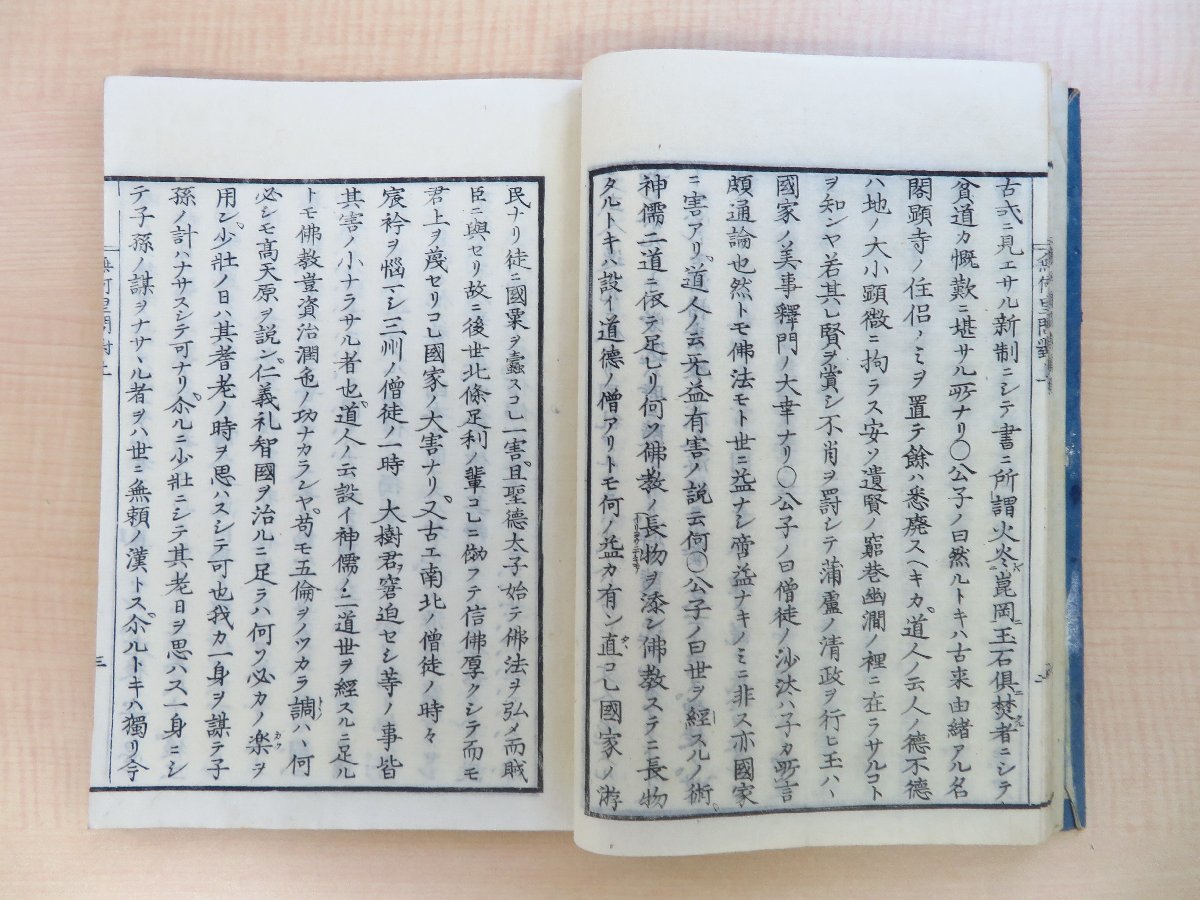 古弍ニ見エサル新制ニシテ書ニ所謂火炎崑岡玉石俱焚者ニシテ
貧道カ慨歎ニ堪サル所ナリ〇公子ノ曰然ルトキハ古来由緒アル名
閣顕寺ノ住侶ノミヲ置テ餘ハ悉廃スヘキカ道人ノ云人ノ德不德
ハ地ノ大小顕微ニ拘ラス安ソ遺賢ノ窮巷幽澗ノ裡ニ在ラサルコト
ヲ知ンヤ若其レ賢ヲ賞シ不肖ヲ罸シテ蒲盧ノ清政ヲ行ヒ玉ハヽ
國家ノ美事釋門ノ大幸ナリ〇公子ノ曰僧徒ノ沙汰ハ子カ所言
頗通論也然トモ佛法モト世ニ益ナシ啻益ナキノミニ非ス亦國家
ニ害アリ道人ノ云无益有害ノ説云何〇公子ノ曰世ヲ經スルノ術
神儒二道ニ依テ足レリ何ソ佛教ノ長物ヲ添ン佛教スラニ長物
タルトキハ設イ道德ノ僧アリトモ何ノ益カ有ン直コレ國家ノ游
民ナリ徒ニ國粟ヲ蠹スコレ一害且聖德太子始テ佛法ヲ弘メ而賊
臣ニ與セリ故ニ後世北條足利ノ輩コレニ倣フテ信佛厚クシテ而モ
君上ヲ蔑セリコレ國家ノ大害ナリ又古エ南北ノ僧徒ノ時々
宸衿ヲ惱マシ三州ノ僧徒ノ一時 大樹君ヲ窘迫セシ等ノ事皆
其害ノ小ナラサル者也道人ノ云設イ神儒ノ二道世ヲ經スルニ足ル
トモ佛教豈資治潤色ノ功ナカラシヤ苟モ五倫ヲノツカラ調ハヽ何
必シモ髙天原ヲ説ン仁義礼智國ヲ治ルニ足ラハ何ソ必カノ楽ヲ
用ン少壯ノ日ハ其耆老ノ時ヲ思ハスシテ可也我カ一身ヲ謀テ子
孫ノ計ハナサスシテ可ナリ尒ルニ少壯ニシテ其老日ヲ思ハス一身ニシ
テ子孫ノ謀ヲナサヽル者ヲハ世ニ無頼ノ漢トス尒ルトキハ獨リ今
三